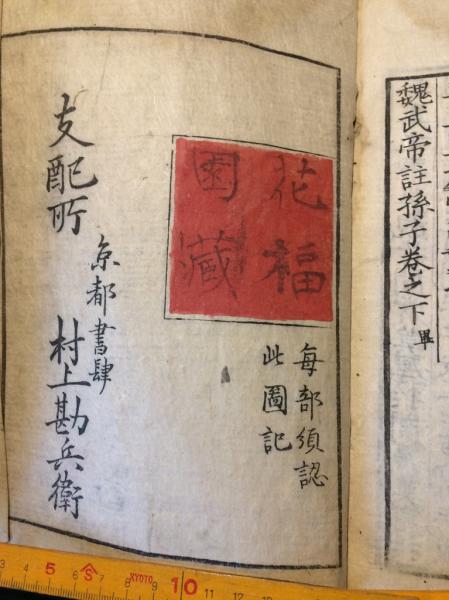 魏武帝註孫子卷之下 畢
花福
園藏
每部須認
此圖記
支配所
京都書肆
村上勘兵衛
3 4 5 6 S 7 8 KYOTO 9 10 11 12 13 14